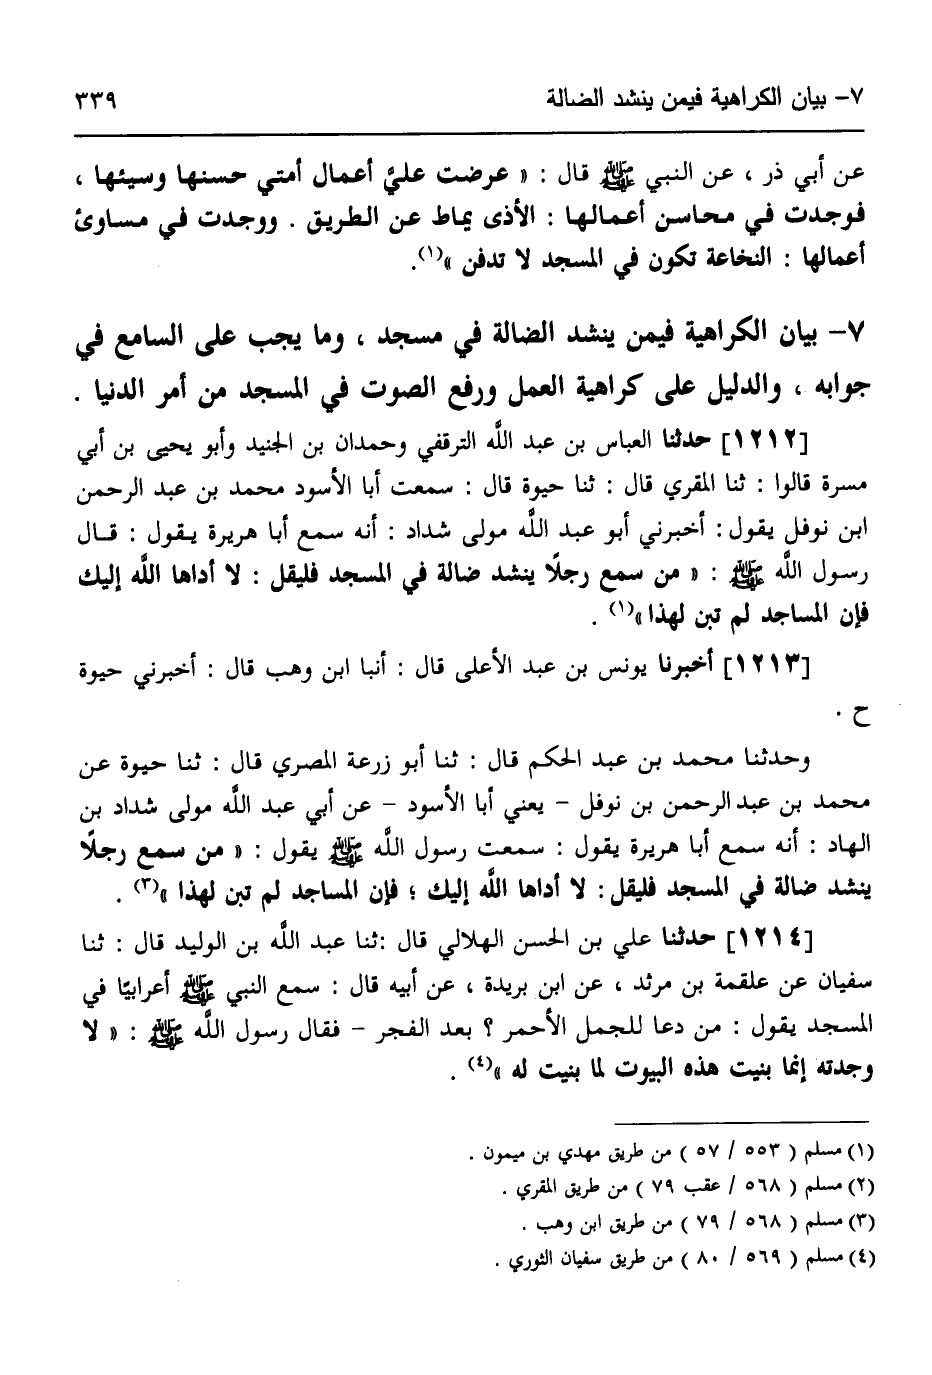 ٧- بيان الكراهية فيمن ينشد الضالة ٣٣٩
عن أبي ذر ، عن النبي ﷺ قال : « عرضت عليَّ أعمال أمتي حسنها وسيئها ،
فوجدت في محاسن أعمالها : الأذى يماط عن الطريق . ووجدت في مساوئ
أعمالها : النخاعة تكون في المسجد لا تدفن »(١).
٧- بيان الكراهية فيمن ينشد الضالة في مسجد ، وما يجب على السامع في
جوابه ، والدليل على كراهية العمل ورفع الصوت في المسجد من أمر الدنيا .
[١٢١٢] حدثنا العباس بن عبد اللَّه الترقفي وحمدان بن الجنيد وأبو يحيى بن أبي
مسرة قالوا : ثنا المقري قال : ثنا حيوة قال : سمعت أبا الأسود محمد بن عبد الرحمن
ابن نوفل يقول : أخبرني أبو عبد اللَّه مولى شداد : أنه سمع أبا هريرة يقول : قـال
رسول اللَّه ﷺ : « من سمع رجلًا ينشد ضالة في المسجد فليقل : لا أداها اللَّه إليك
فإن المساجد لم تبن لهذا»(١) .
[١٢١٣] أخبرنا يونس بن عبد الأعلى قال : أنبا ابن وهب قال : أخبرني حيوة
ح .
وحدثنا محمد بن عبد الحكم قال : ثنا أبو زرعة المصري قال : ثنا حيوة عن
محمد بن عبد الرحمن بن نوفل - يعني أبا الأسود - عن أبي عبد اللَّه مولى شداد بن
الهاد : أنه سمع أبا هريرة يقول : سمعت رسول اللَّه ﷺ يقول : « من سمع رجلًا
ينشد ضالة في المسجد فليقل : لا أداها اللَّه إليك ؛ فإن المساجد لم تبن لهذا »(٣) .
[١٢١٤] حدثنا علي بن الحسن الهلالي قال :ثنا عبد اللَّه بن الوليد قال : ثنا
سفيان عن علقمة بن مرثد ، عن ابن بريدة ، عن أبيه قال : سمع النبي ﷺ أعرابيًا في
المسجد يقول : من دعا للجمل الأحمر ؟ بعد الفجر - فقال رسول اللَّه ﷺ : « لا
وجدته إنما بنيت هذه البيوت لما بنيت له »(٤) .
(١) مسلم ( ٥٥٣ / ٥٧ ) من طريق مهدي بن ميمون .
(٢) مسلم ( ٥٦٨ / عقب ٧٩ ) من طريق المقري .
(٣) مسلم ( ٥٦٨ / ٧٩ ) من طريق ابن وهب .
(٤) مسلم ( ٥٦٩ / ٨٠ ) من طريق سفيان الثوري .